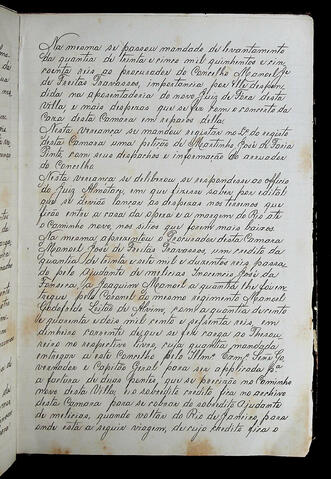 Na mesma se passou mandado de levantamento
da quantia de trinta e cinco mil quinhentos e cin
coenta reis ao procurador do Concelho Manoel Je
de Freitas Travassos, importancia por elle despen
dida na aposentadoria do novo Juiz de Fora desta
Villa e mais despesas que se fez com o concerto da
Casa desta Camara em reparos della
Nesta vereança se mandou registar no Lo do registo
desta Camara uma petição de Martinho José de Faria
Pinto, com seus despachos e informação do arruador
do Concelho
Nesta vereança se deliberou se respondesse ao officio
do Juiz Almotacé, em que fizesse saber por edital
que se devião lançar as despesas nos terrenos que
ficão entre a casa da opera e a margem do Rio até
o Caminho novo, nos sitios que forem mais baixos.
Na mesma apresentou o Procurador desta Camara
Manoel José de Freitas Travassos, um credito da
quantia de trinta e sete mil e duzentos reis, passa
do pelo Ajudante de melicias Inocencio José da
Fonseca, a Joaquim Manoel a quantia lhe foi en
tregue pelo Coronel do mesmo regimento Manoel
com a quantia de cento
e quarenta e dois mil cento e setenta reis, em
dinheiro corrente de que se fez carga ao Thesou
reiro no respectivo livro, cuja quantia mandada
entregar a este Concelho pelo Illmo Exmo Senr Go
vernador e Capitão Geral para ser applicada pa
a factura de duas pontes, que se percisão no Caminho
novo desta Villa, e o sobredito credito fica no archivo
desta Camara para se cobrar do sobredito Ajudante
de melicias, quando voltar do Rio de Janeiro, para
onde está a seguir viagem, de cujo credito fica o